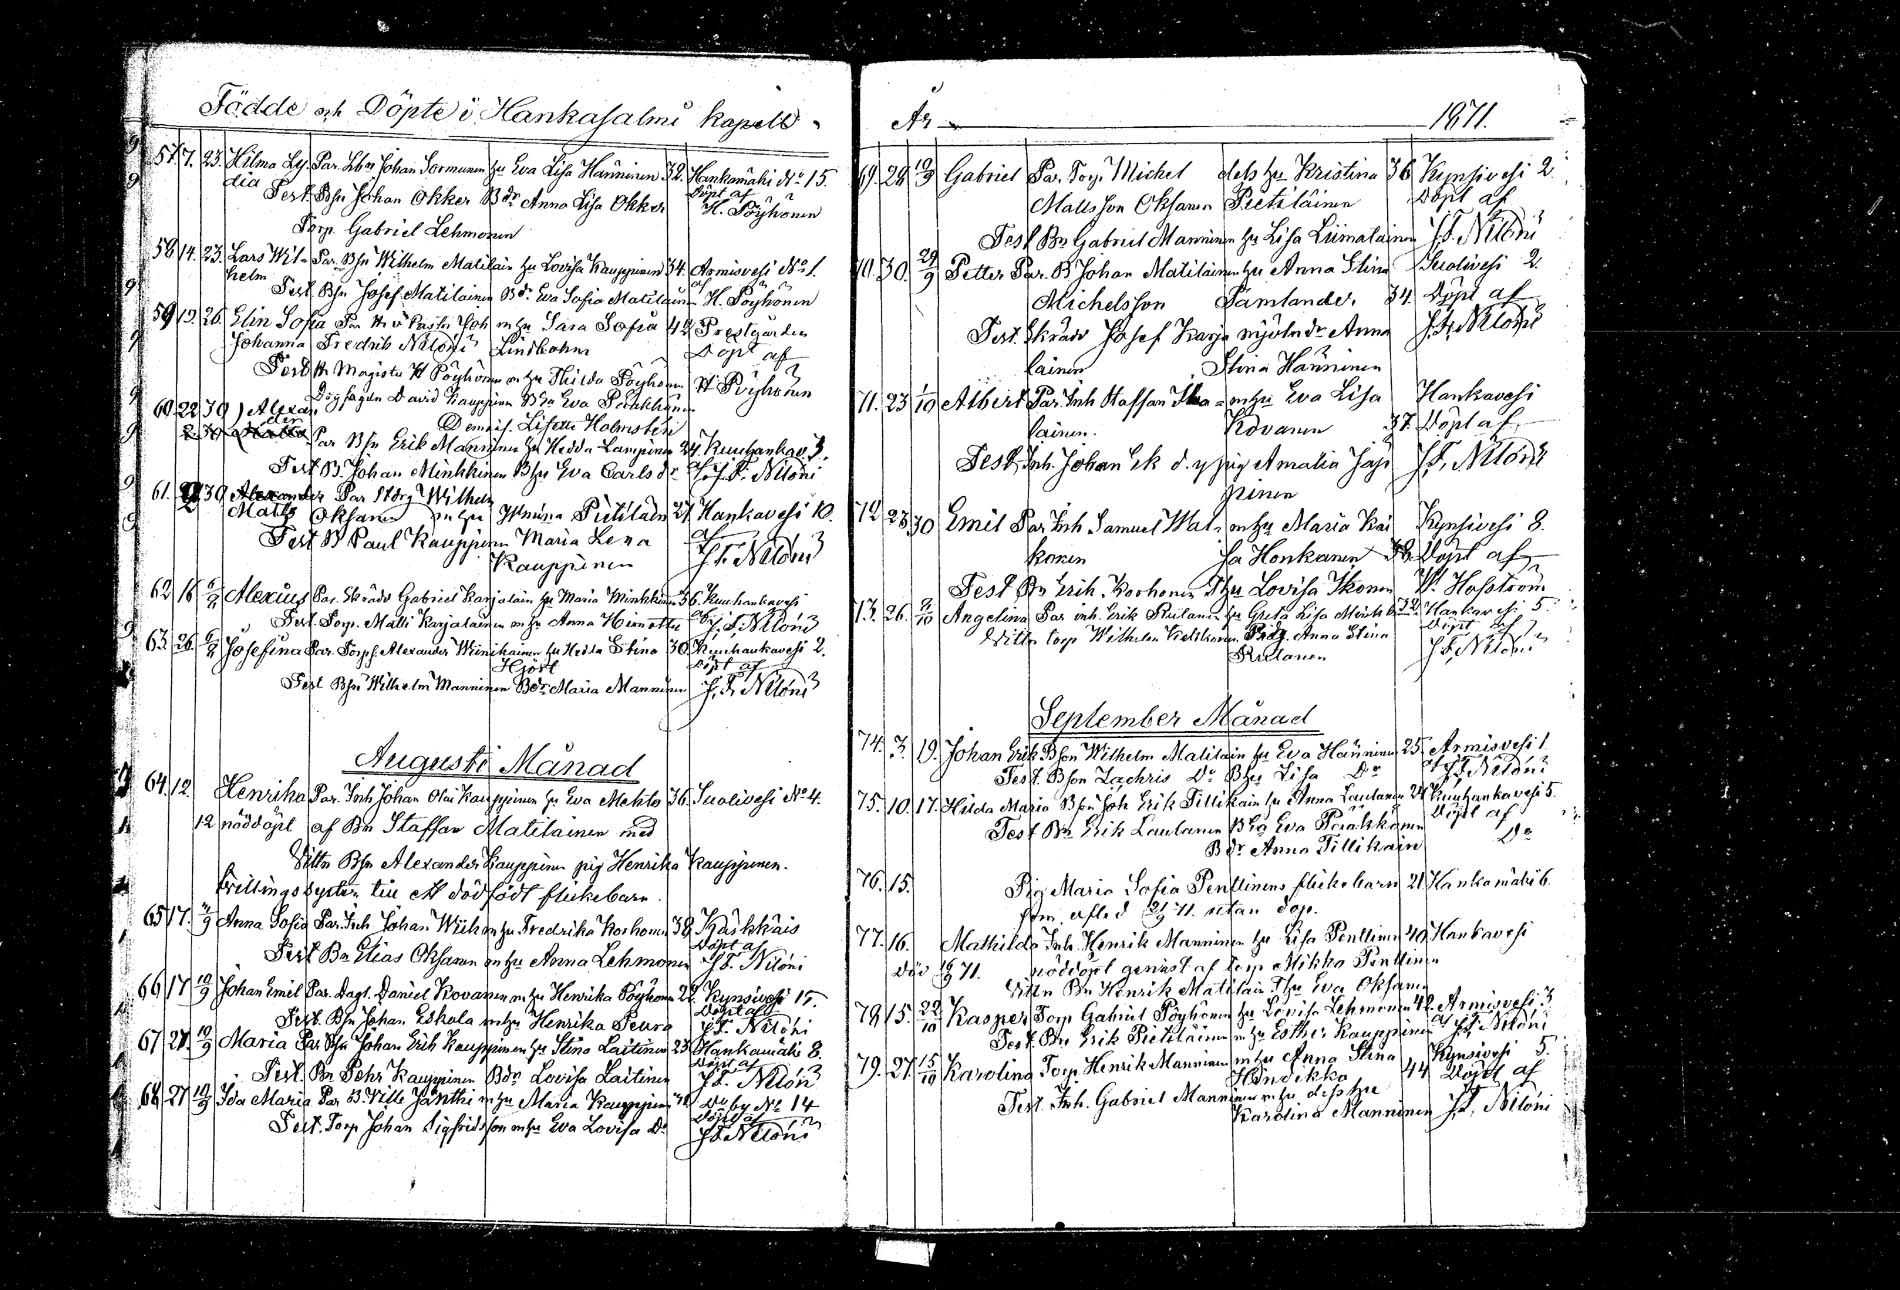 Födde och Döpte i Hankasalmi kapell
57. 7. 23. Hilma Ly- Par. Lbr Johan Sormunen hu Eva Lisa Hänninen 32. Hankamäki No 15.
dia Test. Bsn Johan Okker Bdr Anna Lisa Okker Döpt af H. Pöyhönen
Torp Gabriel Lehmonen
58 14. 23. Lars Wil- Par. Bsn Wilhelm Matilain hu Lovisa Kauppinen 34. Armisvesi No 1.
helm Test. Bsn Josef Matilainen Bdr Eva Sofia Matilainen af H. Pöyhönen
59 19. 26. Elin Sofia Par. Joh m hu Sara Sofia Prestgården
Johanna Fredrik Nilóni Lindbohm Döpt af
Test H Magister H Pöyhönen m hu Thilda Pöyhönen H Pöyhönen
David Kauppinen Eva Pöräkkönen
60. 22 30 Alexan
der Demois. Lisette Holmstén
Par Bsn Erik Manninen hu Hedda Lampinen 24. Kuuhankav. 3.
Test B. Johan Minkkinen Bhu Eva Carlsdr af J. F. Nilóni
61. 22 30 Alexander Par Wilhelm
Matts Oksanen m hu Pietiläin 27. Hankavesi 10.
Test B Paul Kauppinen Maria Lena af
Kauppinen J. F. Nilóni
62 16 6/8 Alexius Par. Skrädd Gabriel Karjalain hu Maria Minkkinen 36. Kuuhankavesi
Test. Torp. Matti Karjalainen m hu Anna af J. F. Nilóni
63. 26. 6/8 Josefina Par. Torp. Alexander Weinikainen hu Hedda Stina 30. Kuuhankavesi 2.
Hjort Döpt af
Test Bsn Wilhelm Manninen Bdr Maria Manninen J. F. Nilóni
Augusti Månad
64. 12. Henrika Par. Inh Johan Olai Kauppinen hu Eva Mehto 36. Suolivesi No 4.
12 nöddöpt af Bn Staffan Matilainen med
Vittn Bsn Alexander Kauppinen pig Henrika Kauppinen.
tvillingssyster till ett dödfödt flickebarn.
65 17. Anna Sofia Par. Inh Johan Wiih m hu Fredrika Korhonen 38. Käkkäis
Döpt af
Test Bn Elias Oksanen m hu Anna Lehmonen J. F. Nilóni
66 17 10/9 Johan Emil Par. Dagk. Daniel Kovanen m hu Henrika Pöyhönen 22. Kynsivesi 15.
Döpt af
Test. Bsn Johan Eskola m hu Henrika Peura J. F. Nilóni
67 27. 10/9 Maria Par Bsn Johan Erik Kauppinen hu Stina Laitinen 23. Hankamäki 8.
Döpt af
Test. Bn Pehr Kauppinen Bdr Lovisa Laitinen J. F. Nilóni
68 27 10/9 Ida Maria Par B. Ville Jänthi m hu Maria Kauppinen No 14
Döpt af
Test. Torp Johan Sigfridsson m hu Eva Lovisa Do J. F. Nilóni
År 1871.
69. 28 10/9 Gabriel Par. Torp. Michel dess hu Kristina 36 Kynsivesi 2.
Mattsson Oksanen Pietiläinen Döpt af
Test Bn Gabriel Manninen hu Lisa Liimatainen J. F. Nilóni
70. 30. 29/9 Petter Par. B Johan Matilainen hu Anna Stina Suolivesi 2.
Michelsson Sämlander. 34. Döpt af
Test. Skrädd Josef Karja- mjölndr Anna J. F. Nilóni
lainen Stina Hänninen
71. 23 1/10 Albert Par. Inh Staffan m hu Eva Lisa Hankavesi
lainen. Kovanen 37. Döpt af
Test Inh. Johan Ek d. y pig Amalia Jäp J. F. Nilóni
pinen
72 23 30 Emil Par Inh Samuel Wal- m hu Maria Kai Kynsivesi 8.
konen sa Honkanen Döpt af
Test Bn Erik Korhonen Thu Lovisa Ikonen W. Hofström
73. 26. Angelina Par inh. Erik Rutanen hu Greta Lisa Hankavesi 5.
Vittn torp Wilhelm Anna Stina Döpt af
Rutanen J. F. Nilóni
September Månad
74. 3. 19. Johan Erik Bson Wilhelm Matilain hu Eva Hänninen 25. Armisvesi 1.
Test. Bson Zachris Do Bhu Lisa Do af J. F. Nilóni
75. 10. 17. Hilda Maria Bsn Joh Erik Tillikain hu Anna Lautanen 24 Kuuhankavesi 5.
Test Bn Erik Lautanen Eva Pöräkkönen Döpt af
Bdr Anna Tillikain Do
76. 15. Pig Maria Sofia Penttinens flickebarn 21. Hankamäki 6.
som afled 71. utan dop.
77. 16. Mathilda Inh Henrik Manninen hu Lisa Penttinen 40. Hankavesi
Död 16/9 71. nöddöpt genast af torp Mikko Penttinen
Vittn Bn Henrik Matilain Thu Eva Oksanen
78 15. 22/10 Kasper Torp Gabriel Pöyhönen hu Lovisa Lehmonen 42. Armisvesi 3
Test. Bn Erik Pietiläinen m hu Esther Kauppinen af J. F. Nilóni
79. 27. 15/10 Karolina Torp. Henrik Manninen m hu Anna Stina Kynsivesi 5.
Hindikka 44 Döpt af
Test. Inh. Gabriel Manninen m hu dess hu
Karolina Manninen J. F. Nilóni